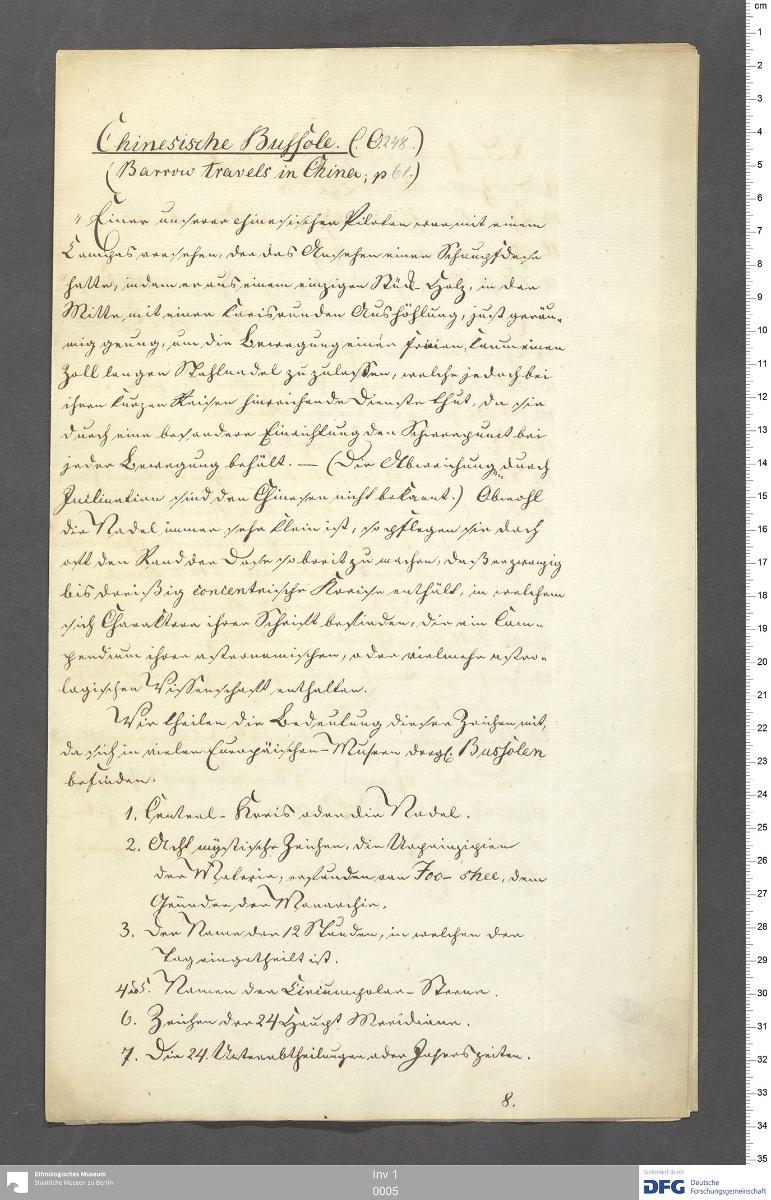 Chinesische Bussole. (: C. 248.)
(Barrow travels in China, p 61.)
"Einer unserer chinesischen Piloten war mit einem
Compas versehen, der das Ansehen einer Schnupfdose
hatte, indem er aus einem einzigen Stück Holz, in der
Mitte mit einer kreisrunden Aushöhlung, just geräu-
mig genug, um die Bewegung einer freien, kaum einen
Zoll langen Stahlnadel zu zulassen, welche jedoch bei
ihren kurzen Reisen hinreichende Dienste thut, da sie
durch eine besondere Einrichtung den Schwerpunct bei
jeder Bewegung behält. — (Die Abweichung durch
Inclination sind den Chinesen nicht bekannt.) Obwohl
die Nadel immer sehr klein ist, so pflegen sie doch
oft den Rand der Dose so breit zu machen, daß er zwanzig
bis dreißig concentrische Kreise enthält, in welchem
sich Charaktere ihrer Schrift befinden, die ein Com-
pendium ihrer astronomischen, oder vielmehr astro-
logischen Wissenschaft enthalten.
Wir theilen die Bedeutung dieser Zeichen mit,
da sich in vielen Europäischen Museen dergl. Bussolen
befinden.
1. Central-Kreis oder die Nadel.
2. Acht mystische Zeichen, die Urprinzipien
der Materie, erfunden von Foo-shee, dem
Gründer der Monarchie.
3. Der Name der 12 Stunden, in welchen der
Tag eingetheilt ist.
4 u 5. Namen der Circumpolar-Sterne.
6. Zeichen der 24 Haupt Meridiane.
7. Die 24. Unterabtheilungen oder Jahreszeiten.
8.
Ethnologisches Museum
Staatliche Museen zu Berlin
Inv 1
0005
Gefördert durch
DFG Deutsche
Forschungsgemeinschaft
cm
1
2
3
4
5
6
7
8
9
10
11
12
13
14
15
16
17
18
19
20
21
22
23
24
25
26
27
28
29
30
31
32
33
34
35